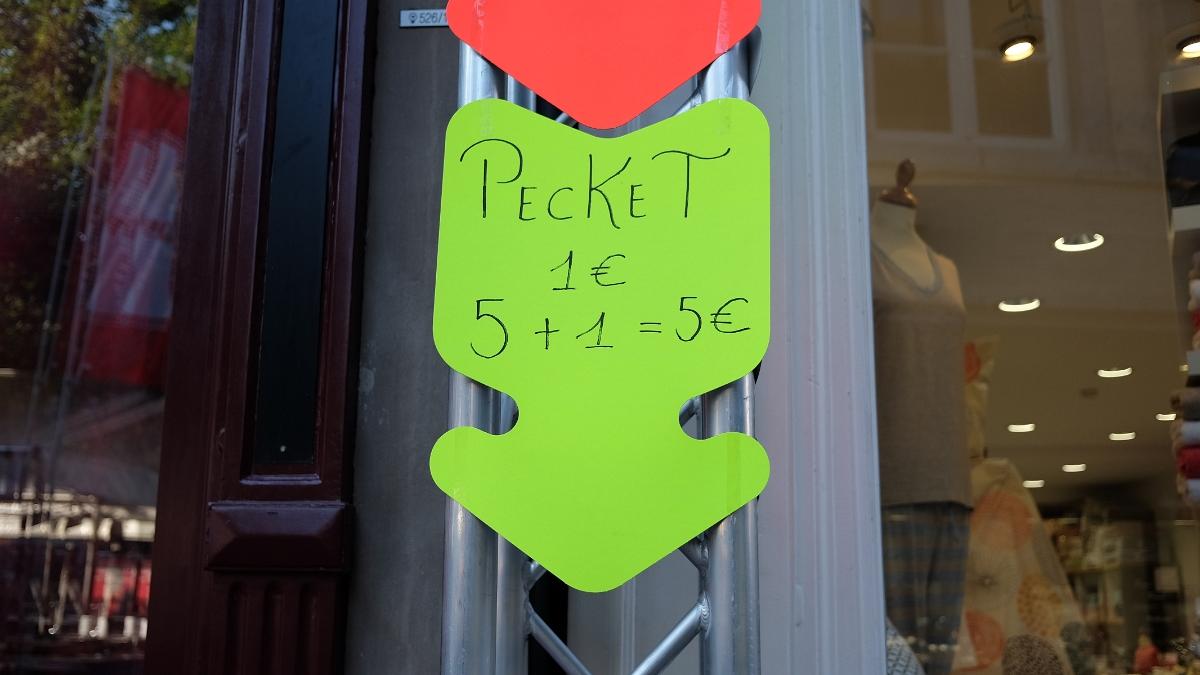 PECKET
1€
5 + 1 = 5€